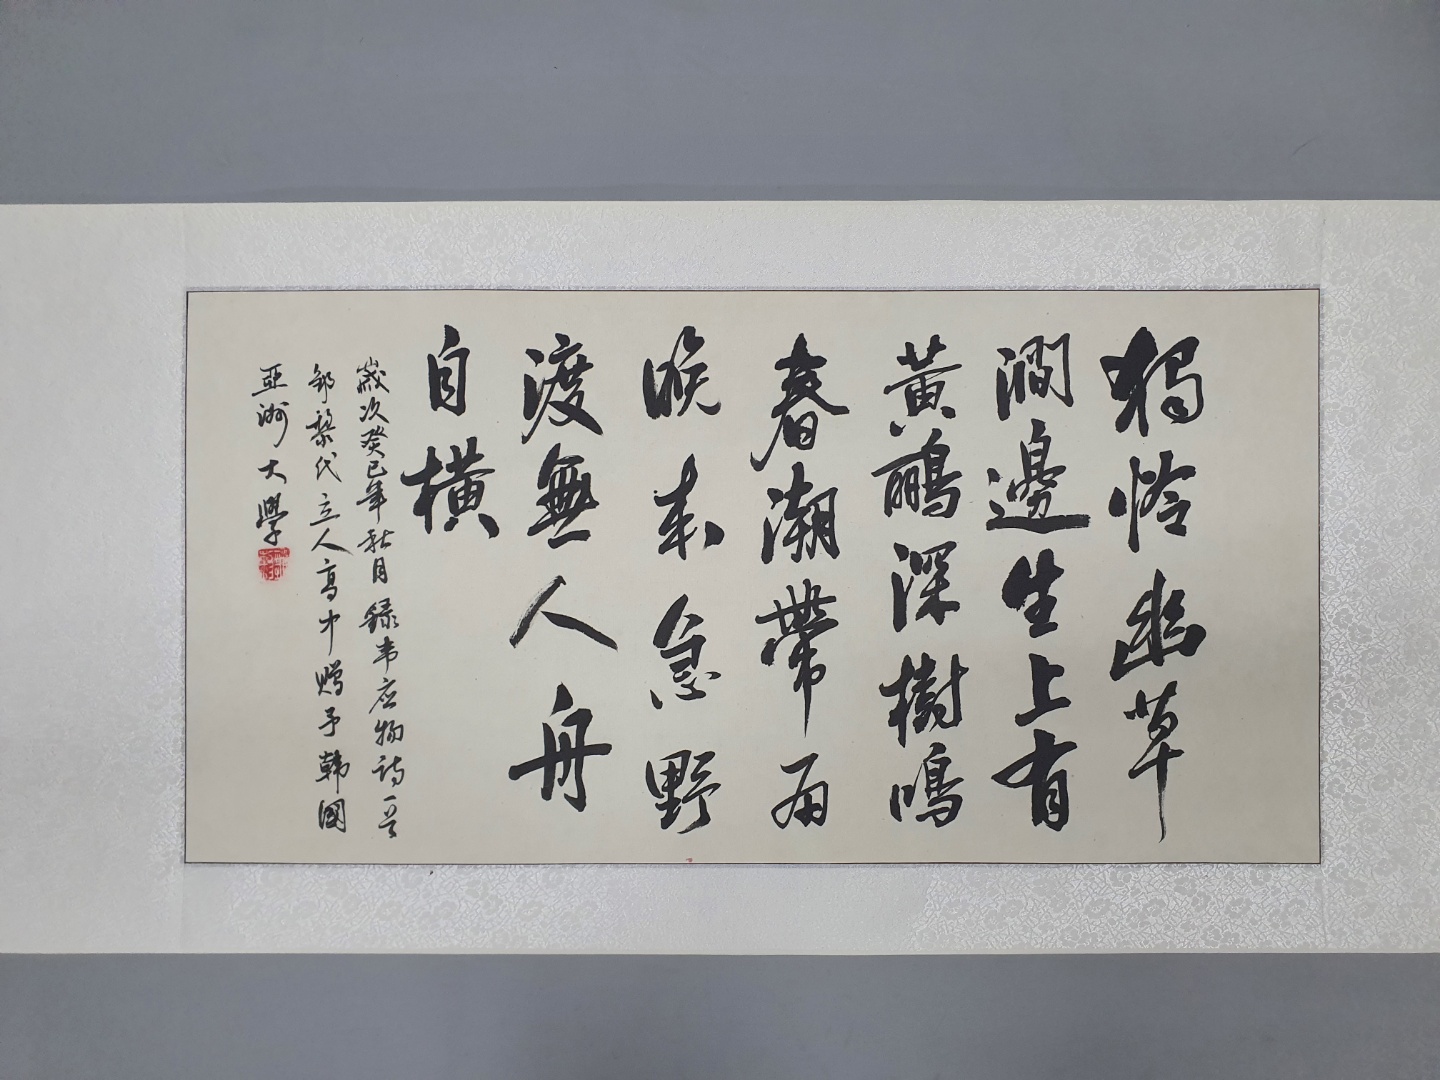 獨怜幽草
澗邊生上有
黃鸝深樹鳴
春潮帶雨
晚来急野
渡無人舟
自橫
歲次癸巳年秋月錄韦应物诗一首
邹黎代立人高中赠予韩國
亞洲大學